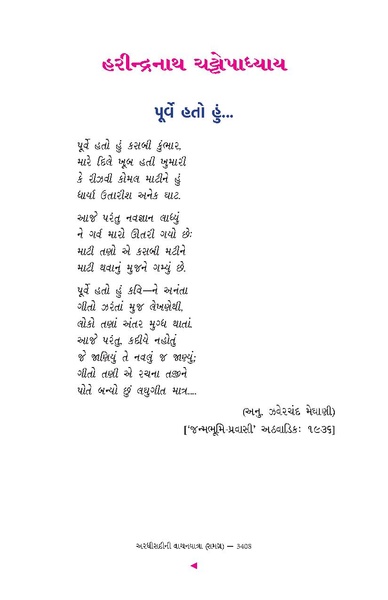 હરીન્દ્રનાથ ચટ્ટોપાધ્યાય
પૂર્વે હતો હું...
પૂર્વે હતો હું કસબી કુંભાર,
મારે દિલે ખૂબ હતી ખુમારી
કે રીઝવી કોમલ માટીને હું
ધાર્યા ઉતારીશ અનેક ઘાટ.
આજે પરંતુ નવજ્ઞાન લાધ્યું
ને ગર્વ મારો ઊતરી ગયો છેઃ
માટી તણો એ કસબી મટીને
માટી થવાનું મુજને ગમ્યું છે.
પૂર્વે હતો હું કવિ—ને અનંતા
ગીતો ઝરંતાં મુજ લેખણેથી,
લોકો તણાં અંતર મુગ્ધ થાતાં.
આજે પરંતુ, કદીયે નહોતું
જે જાણિયું તે નવલું જ જાણ્યું;
ગીતો તણી એ રચના તજીને
પોતે બન્યો છું લઘુગીત માત્ર....
(અનુ. ઝવેરચંદ મેઘાણી)
['જન્મભૂમિ-પ્રવાસી' અઠવાડિકઃ ૧૯૩૬]
અરધીસદીની વાચનયાત્રા (સમગ્ર) — 3408